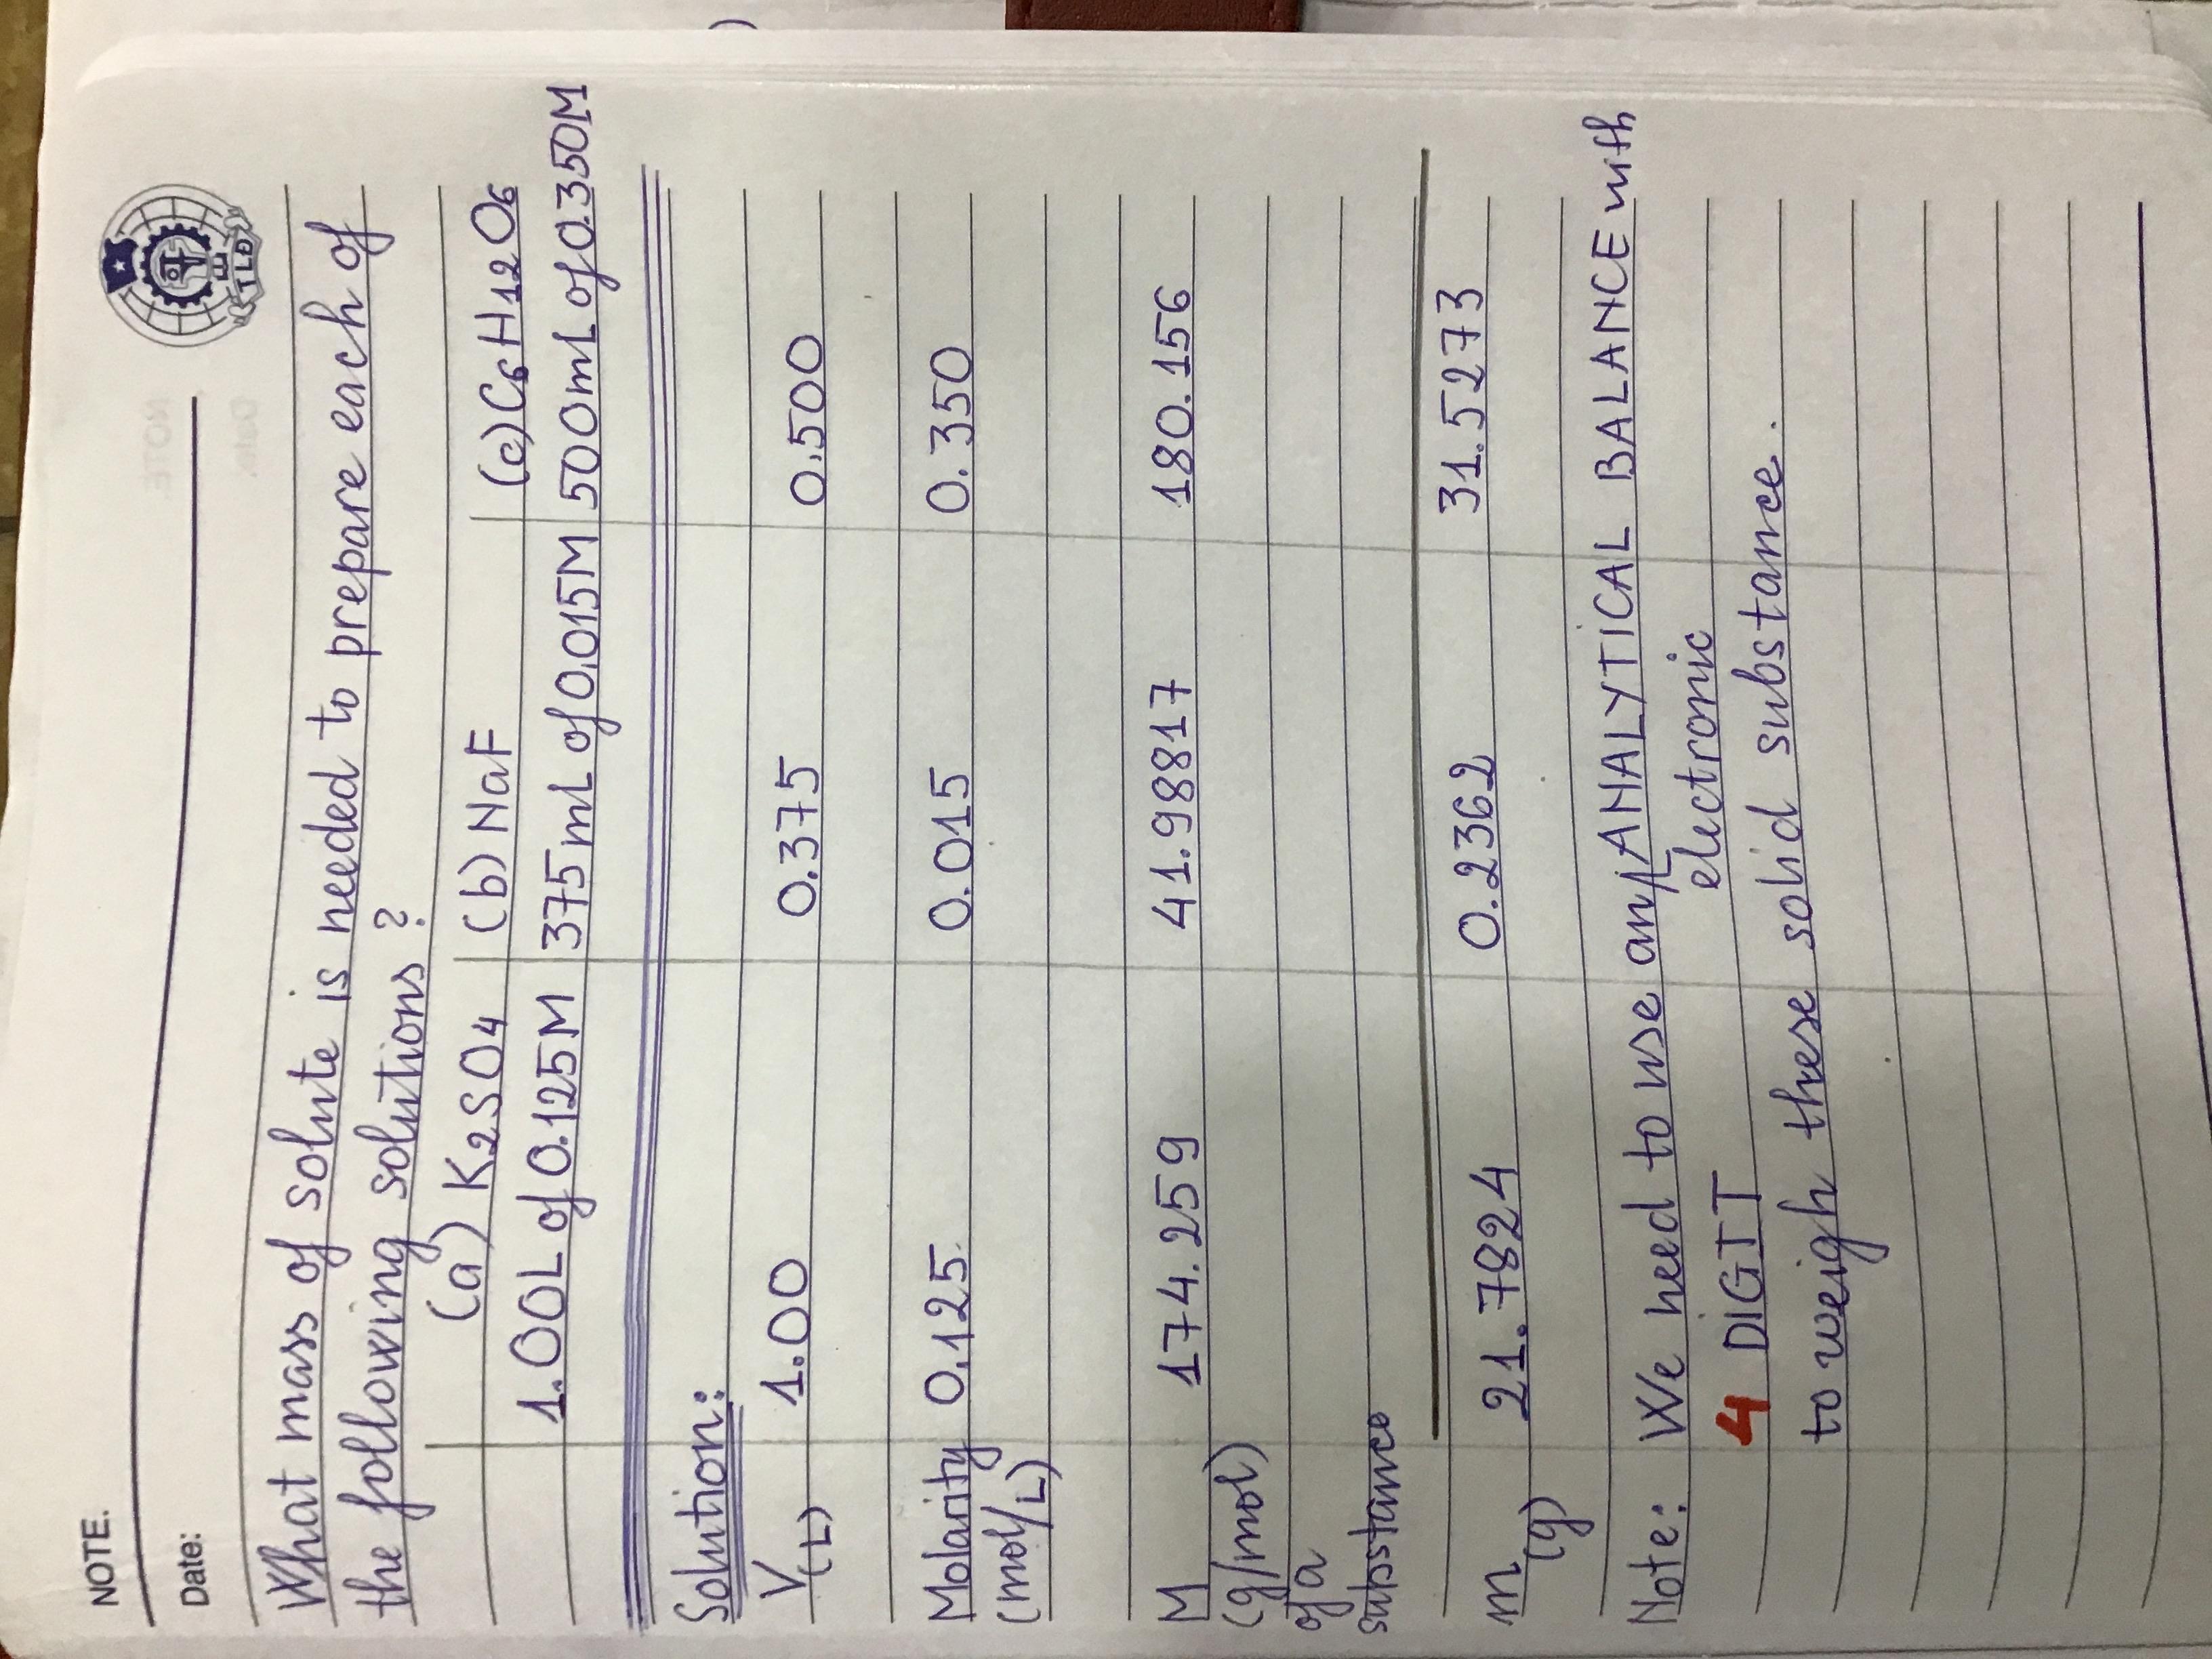 NOTE.
Date:
TLĐ
What mass of solute is needed to prepare each of
the following solutions ?
(a) K2SO4 (b) NaF (c) C6H12O6
1.00L of 0.125M 375mL of 0.015M 500mL of 0.350M
Solution:
V(L) 1.00 0.375 0.500
Molarity 0.125 0.015 0.350
(mol/L)
M 174.259 41.98817 180.156
(g/mol)
of a
substance
m 21.7824 0.2362 31.5273
(g)
Note: We need to use an ANALYTICAL BALANCE with
electronic
4 DIGIT
to weigh these solid substance.